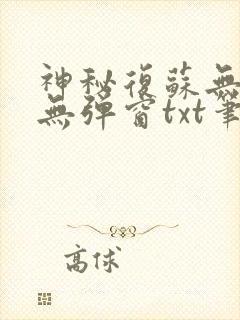 神秘復蘇無
無彈窗txt筆
高俅